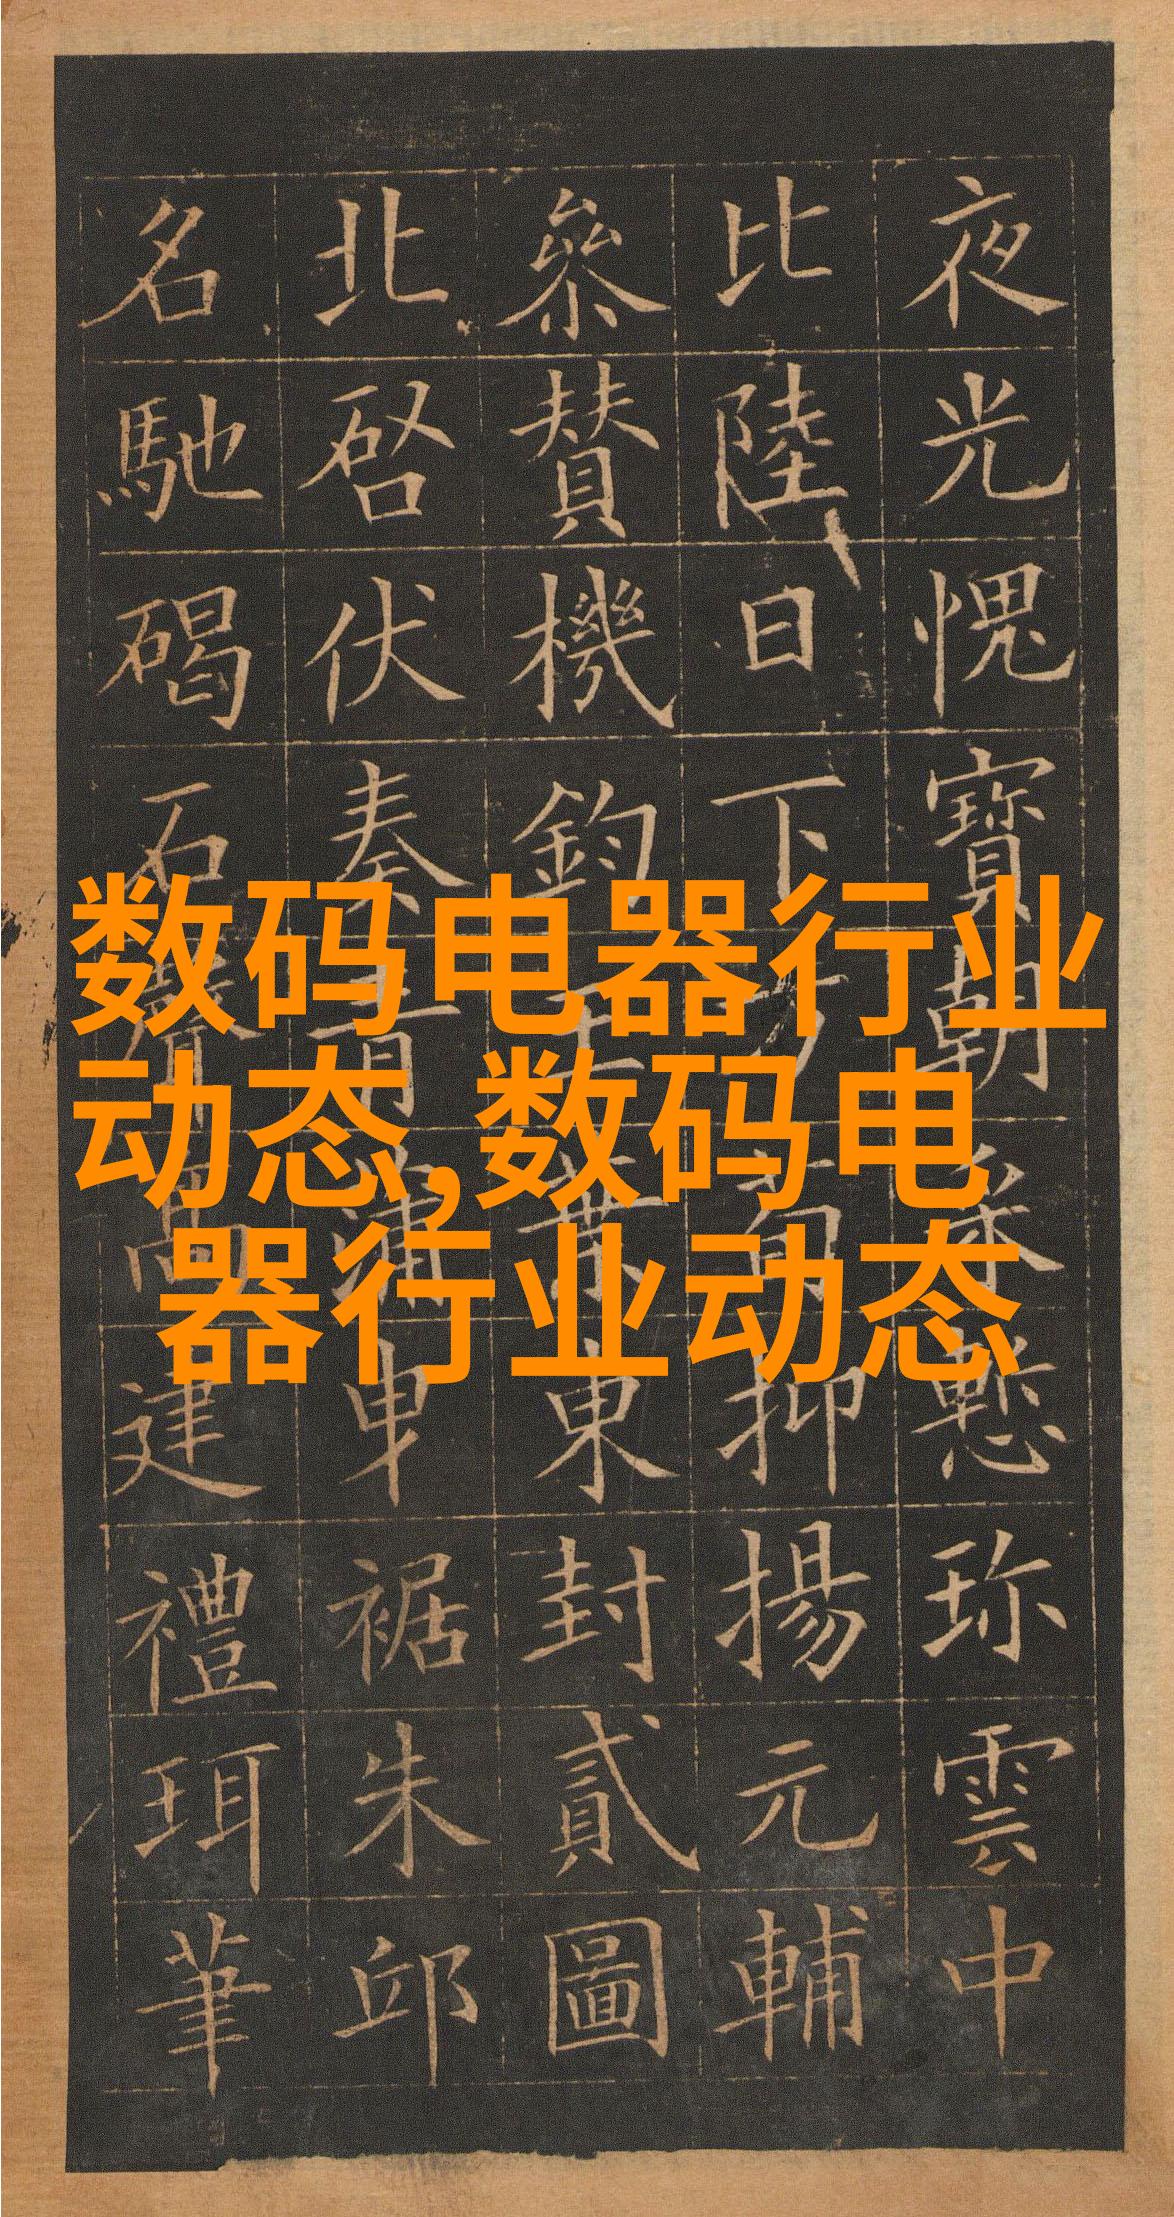 数码电器行业
动态,数码电
器行业动态
夜光愧寶朝采懸珎雲中
比陸日下抑揚元輔
參賛機鈞東封貳圖
北啓伏奏青蒲曳裾朱邱
名馳碣石高建禮珥筆